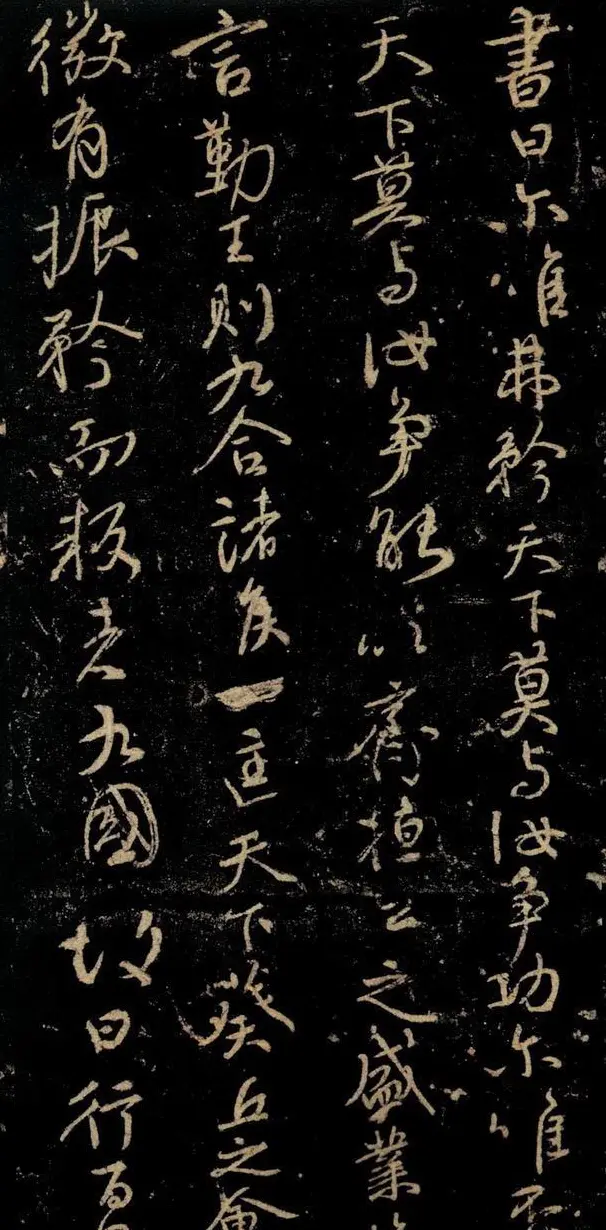 書曰尔唯弗矜天下莫与汝爭功尔唯不
天下莫与汝爭能以齊桓公之盛業
言勤王則九合諸侯一匡天下葵丘之會
微有振矜而叛者九國故曰行百